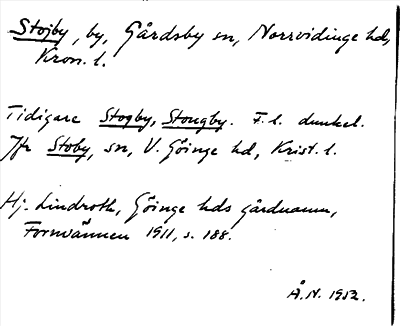 Stojby, by, Gårdsby sn, Norrvidinge hd,
Kron. l.
Tidigare Stogby, Stougby. F. l. dunkel.
Jfr Stoby, sn, V. Göinge hd, Krist. l.
Hj. Lindroth, Göinge hds gårdnamn,
Fornvännen 1911, s. 188.
Å.N. 1952.